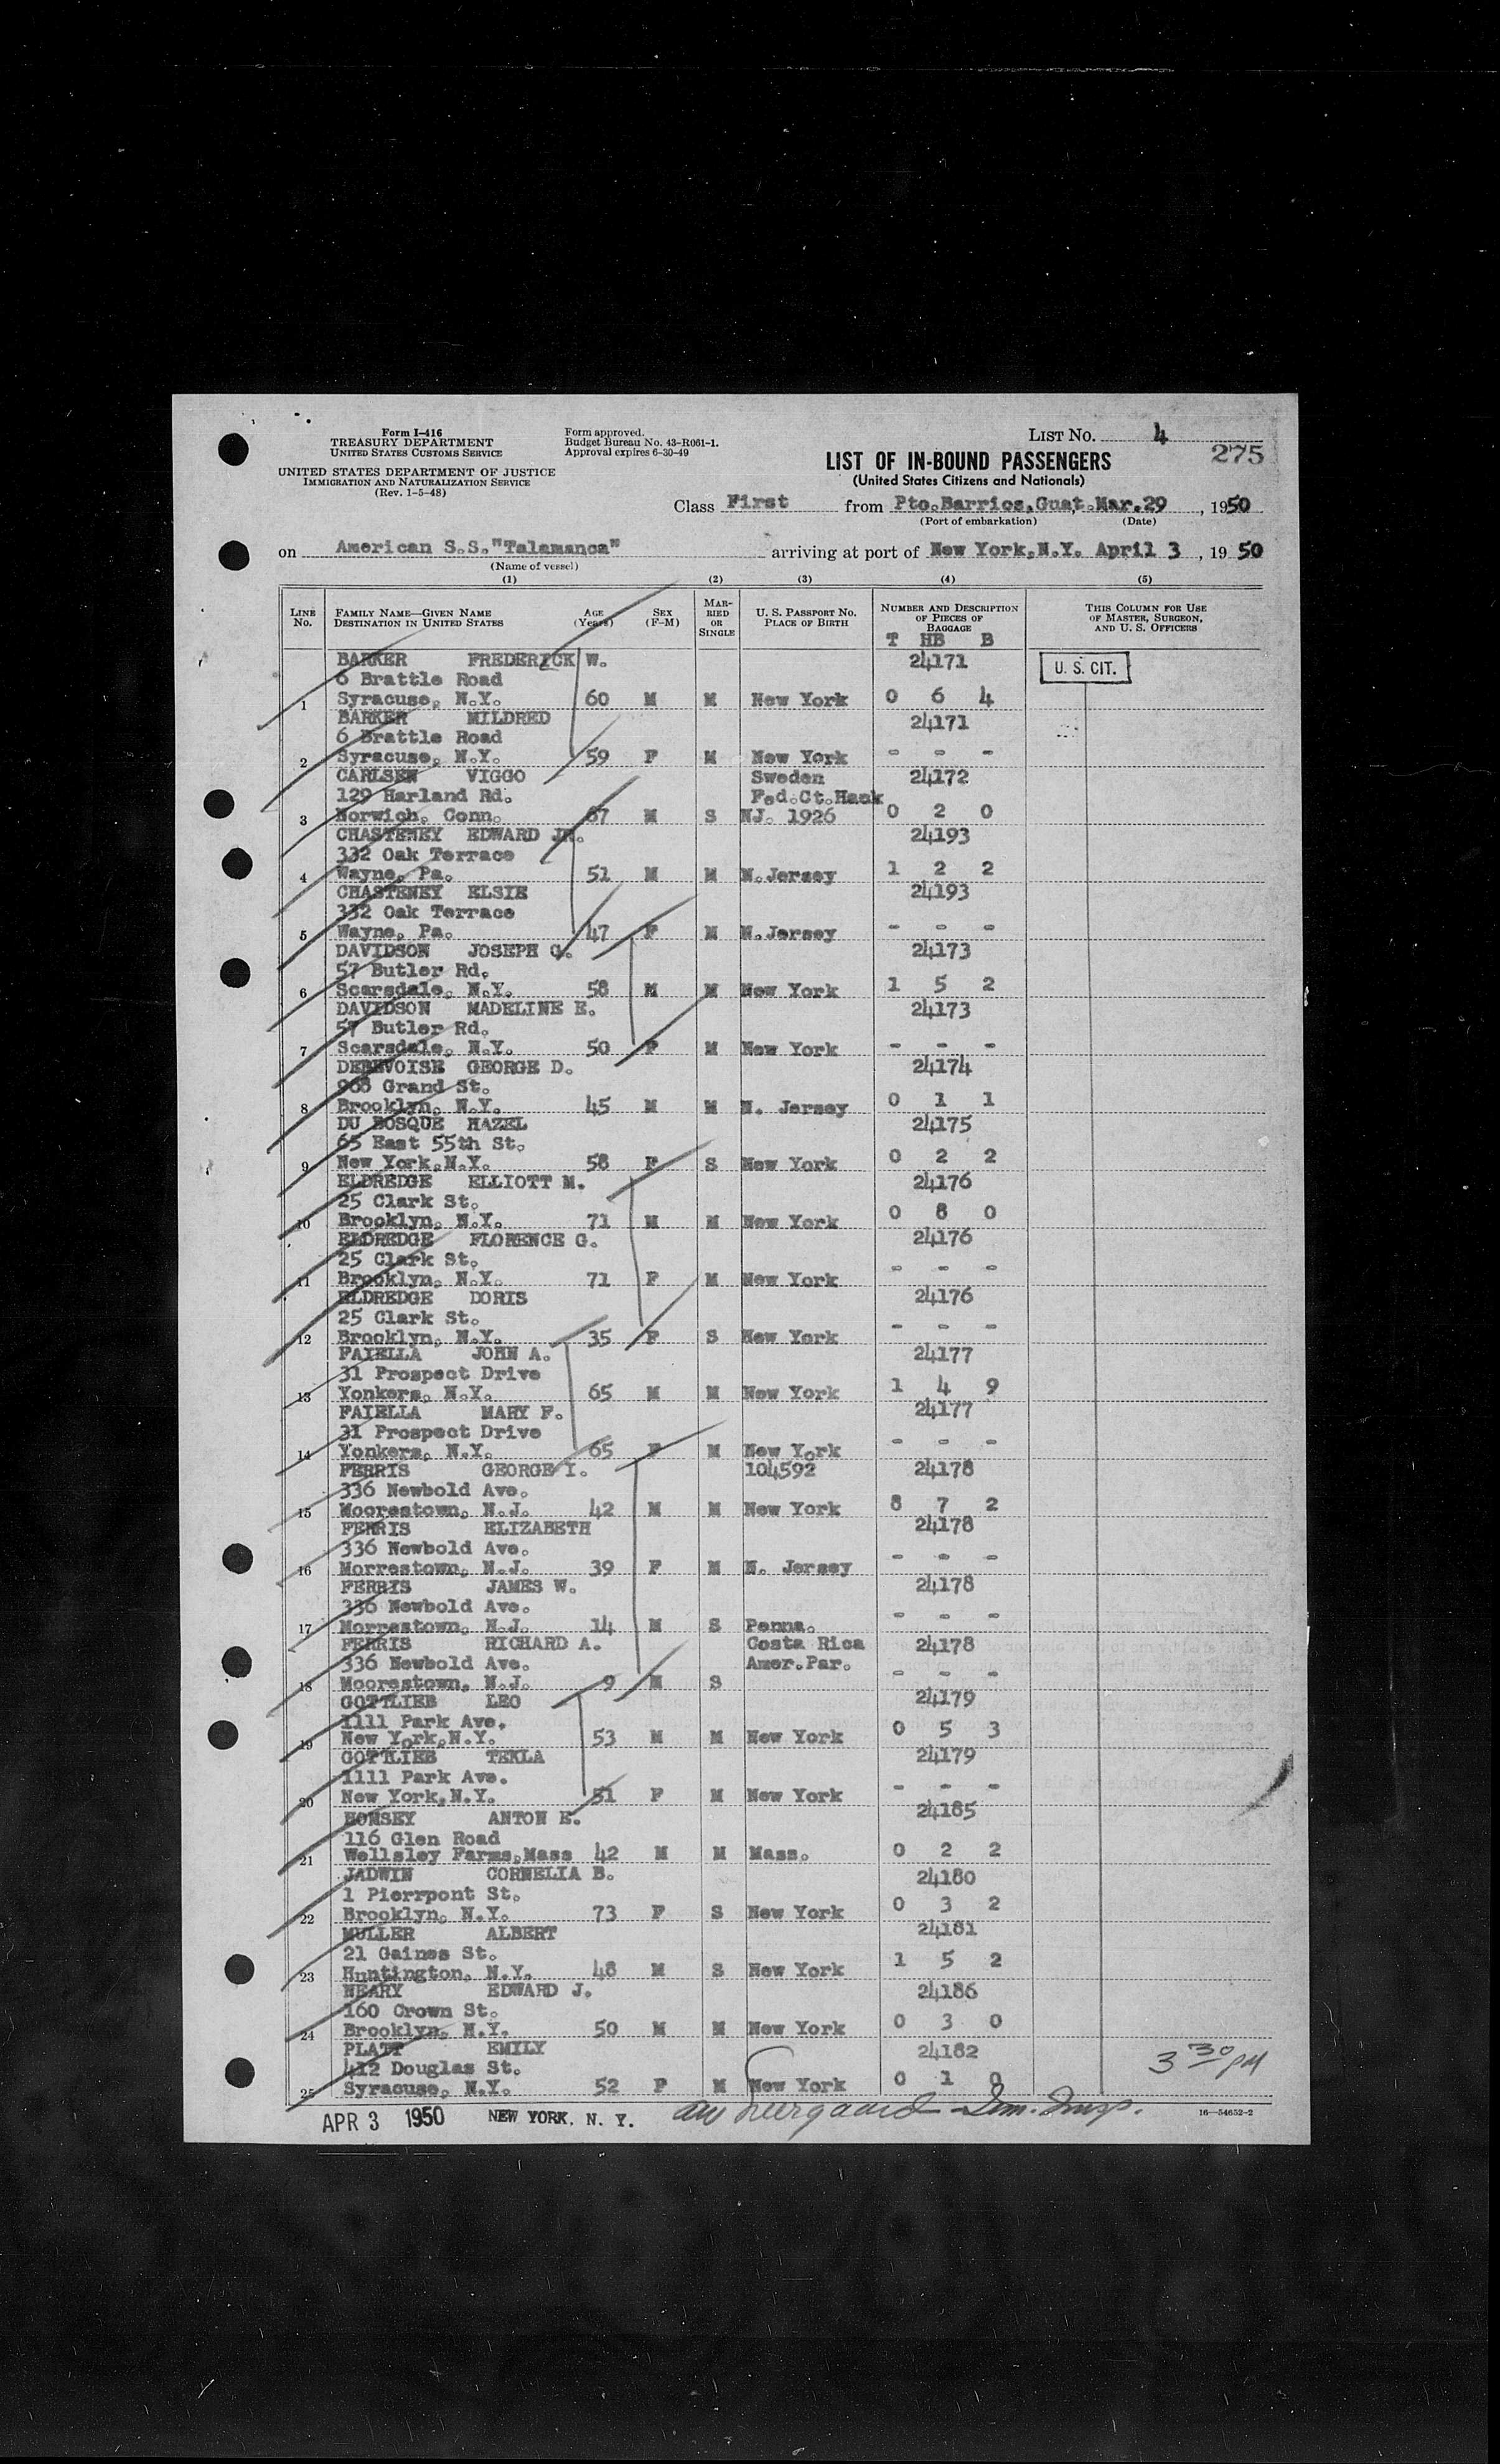 Form I-416
TREASURY DEPARTMENT
UNITED STATES CUSTOMS SERVICE
UNITED STATES DEPARTMENT OF JUSTICE
IMMIGRATION AND NATURALIZATION SERVICE
(Rev. 1-5-48)
Form approved.
Budget Bureau No. 43-R061-1.
Approval expires 6-30-49
LIST NO. 4
275
LIST OF IN-BOUND PASSENGERS
(United States Citizens and Nationals)
Class First from Pto.Barrios,Guat. Mar.29, 1950
(Port of embarkation) (Date)
on American S.S."Talamanca" arriving at port of New York,N.Y. April 3, 1950
(Name of vessel)
(1) (2) (3) (4) (5)
LINE No. FAMILY NAME—GIVEN NAME DESTINATION IN UNITED STATES AGE (Years) SEX (F-M) MARRIED OR SINGLE U. S. PASSPORT NO. PLACE OF BIRTH NUMBER AND DESCRIPTION OF PIECES OF BAGGAGE THIS COLUMN FOR USE OF MASTER, SURGEON, AND U. S. OFFICERS
T HB B
BARKER FREDERICK W. 24171 U. S. CIT.
6 Brattle Road
1 Syracuse, N.Y. 60 M M New York 0 6 4
BARKER MILDRED 24171
6 Brattle Road
2 Syracuse, N.Y. 59 F M New York - - -
CARLSEN VIGGO Sweden 24172
129 Harland Rd. Fed.Ct.Hack
3 Norwich, Conn. 67 M S NJ. 1926 0 2 0
CHASTENEY EDWARD JR. 24193
332 Oak Terrace
4 Wayne, Pa. 51 M M N.Jersey 1 2 2
CHASTENEY ELSIE 24193
332 Oak Terrace
5 Wayne, Pa. 47 F M N.Jersey - - -
DAVIDSON JOSEPH G. 24173
57 Butler Rd.
6 Scarsdale, N.Y. 58 M M New York 1 5 2
DAVIDSON MADELINE E. 24173
57 Butler Rd.
7 Scarsdale, N.Y. 50 F M New York - - -
DEBEVOISE GEORGE D. 24174
968 Grand St.
8 Brooklyn, N.Y. 45 M M N. Jersey 0 1 1
DU BOSQUE HAZEL 24175
65 East 55th St.
9 New York,N.Y. 58 F S New York 0 2 2
ELDREDGE ELLIOTT M. 24176
25 Clark St.
10 Brooklyn, N.Y. 71 M M New York 0 8 0
ELDREDGE FLORENCE G. 24176
25 Clark St.
11 Brooklyn, N.Y. 71 F M New York - - -
ELDREDGE DORIS 24176
25 Clark St.
12 Brooklyn, N.Y. 35 F S New York - - -
FAIELLA JOHN A. 24177
31 Prospect Drive
13 Yonkers, N.Y. 65 M M New York 1 4 9
FAIELLA MARY F. 24177
31 Prospect Drive
14 Yonkers, N.Y. 65 F M New York - - -
FERRIS GEORGE I. 104592 24178
336 Newbold Ave.
15 Moorestown, N.J. 42 M M New York 8 7 2
FERRIS ELIZABETH 24178
336 Newbold Ave.
16 Morrestown, N.J. 39 F M N. Jersey - - -
FERRIS JAMES W. 24178
336 Newbold Ave.
17 Morrestown, N.J. 14 M S Penna. - - -
FERRIS RICHARD A. Costa Rica 24178
336 Newbold Ave. Amer.Par.
18 Moorestown, N.J. 9 M S - - -
GOTTLIEB LEO 24179
1111 Park Ave.
19 New York,N.Y. 53 M M New York 0 5 3
GOTTLIEB TEKLA 24179
1111 Park Ave.
20 New York,N.Y. 51 F M New York - - -
HONSEY ANTON E. 24185
116 Glen Road
21 Wellsley Farms,Mass 42 M M Mass. 0 2 2
JADWIN CORNELIA B. 24180
1 Pierrpont St.
22 Brooklyn, N.Y. 73 F S New York 0 3 2
MULLER ALBERT 24181
21 Gaines St.
23 Huntington, N.Y. 48 M S New York 1 5 2
NEARY EDWARD J. 24186
160 Crown St.
24 Brooklyn, N.Y. 50 M M New York 0 3 0
PLATT EMILY 24182
412 Douglas St. 3 30 PM
25 Syracuse, N.Y. 52 F M New York 0 1 0
APR 3 1950 NEW YORK, N. Y. Imm. Insp. 16—54652-2